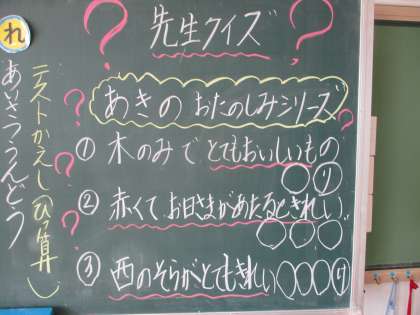 先生クイズ
あきの おたのしみシリーズ
① 木のみで とてもおいしいもの
○り
② 赤くて お日さまがあたるときれい
○○○
③ 西のそらがとてもきれい ○○○け
れ
テストかえし(ひっ算)
あいさつうんどう